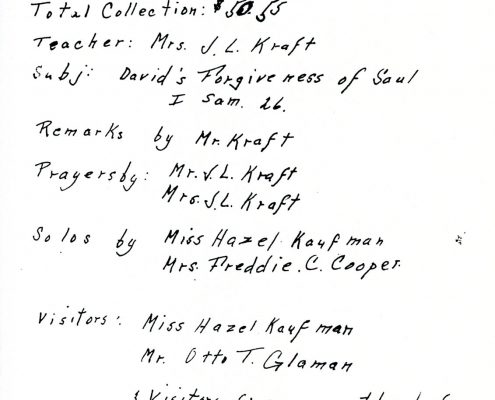 Total Collection: $50.55
Teacher: Mrs. J.L. Kraft
Subj: David's Forgiveness of Saul
I Sam. 26.
Remarks by Mr. Kraft
Prayers by: Mr. J.L. Kraft
Mrs. J.L. Kraft
Solos by Miss Hazel Kaufman
Mrs. Freddie. C. Cooper.
Visitors: Miss Hazel Kaufman
Mr. Otto T. Glaman
Visitors